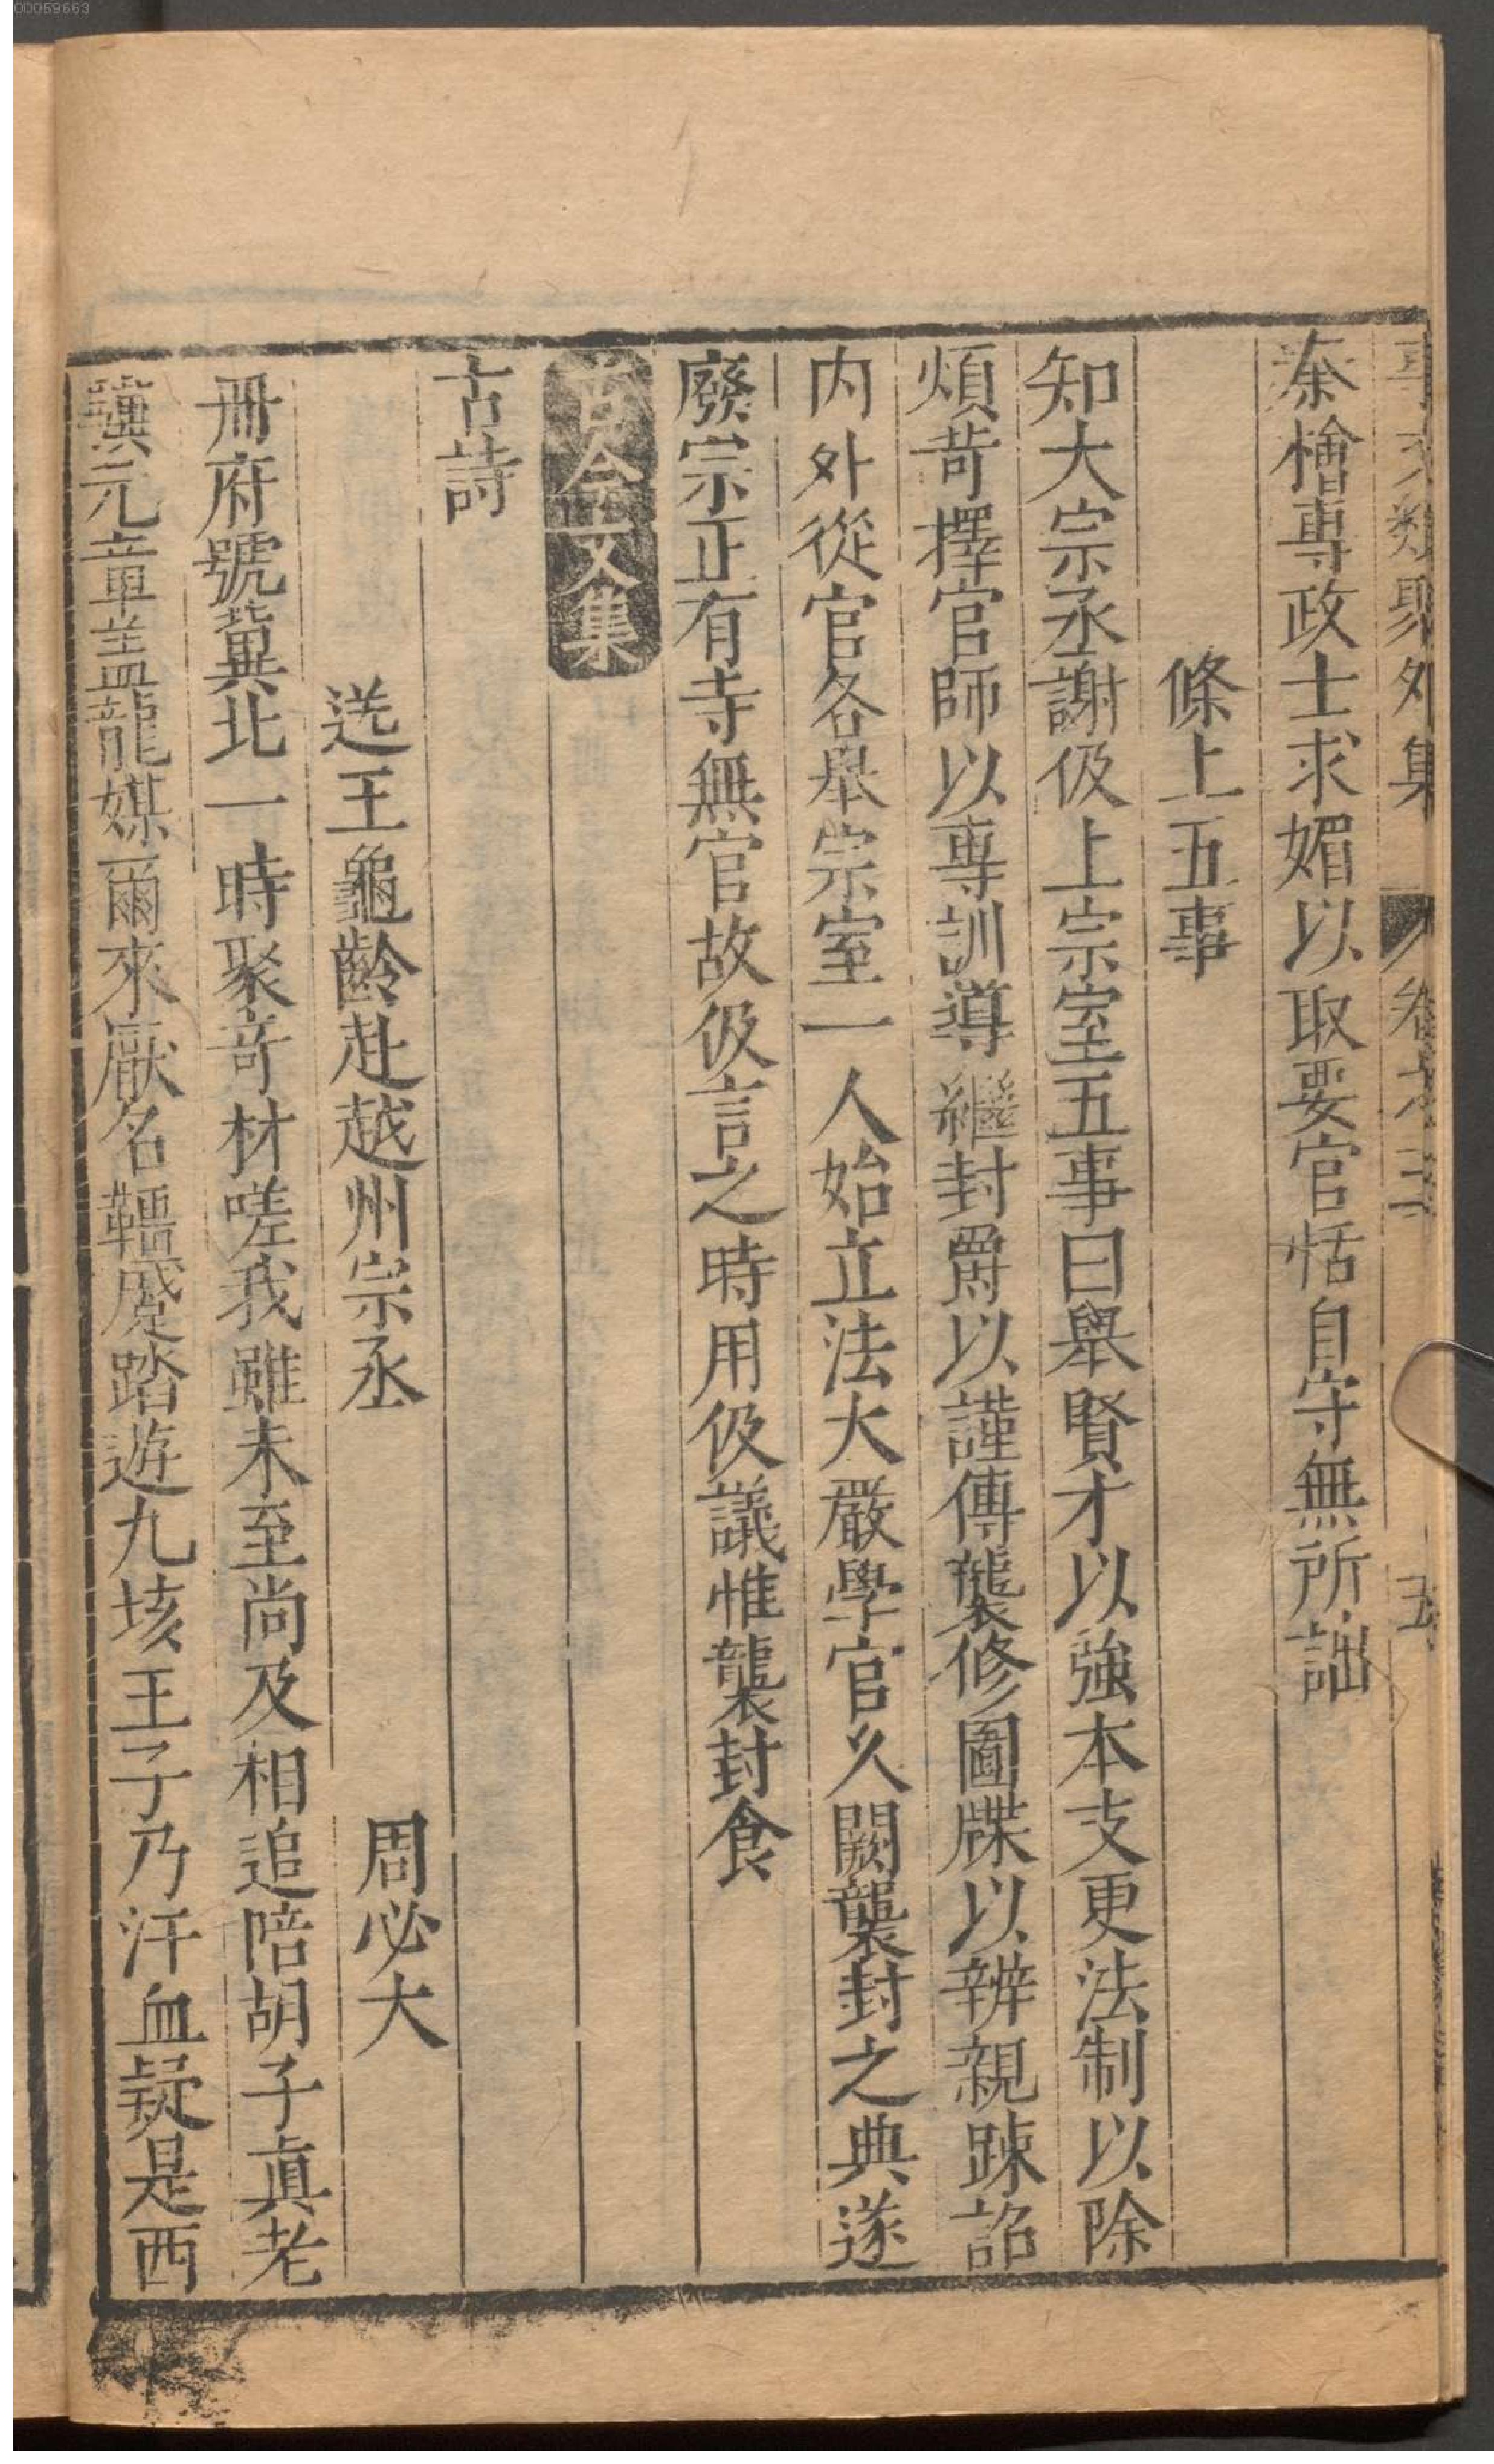 秦檜專政士求媚以取要官恬自守無所詘
條上五事
知大宗丞謝伋上宗室五事曰舉賢才以強本支更法制以除
煩苛擇官師以專訓導繼封爵以謹傳襲修圖牒以辨親踈詔
內外從官各舉宗室一人始立法大嚴學官久闕襲封之典遂
廢宗正有寺無官故伋言之時用伋議惟襲封食
古今文集
古詩
送王龜齡赴越州宗丞 周必大
冊府號冀北一時聚奇材嗟我雖未至尚及相追陪胡子真老
驥元章盖龍媒爾來厭名韁蹙踏遊九垓王子乃汗血疑是西
00059663